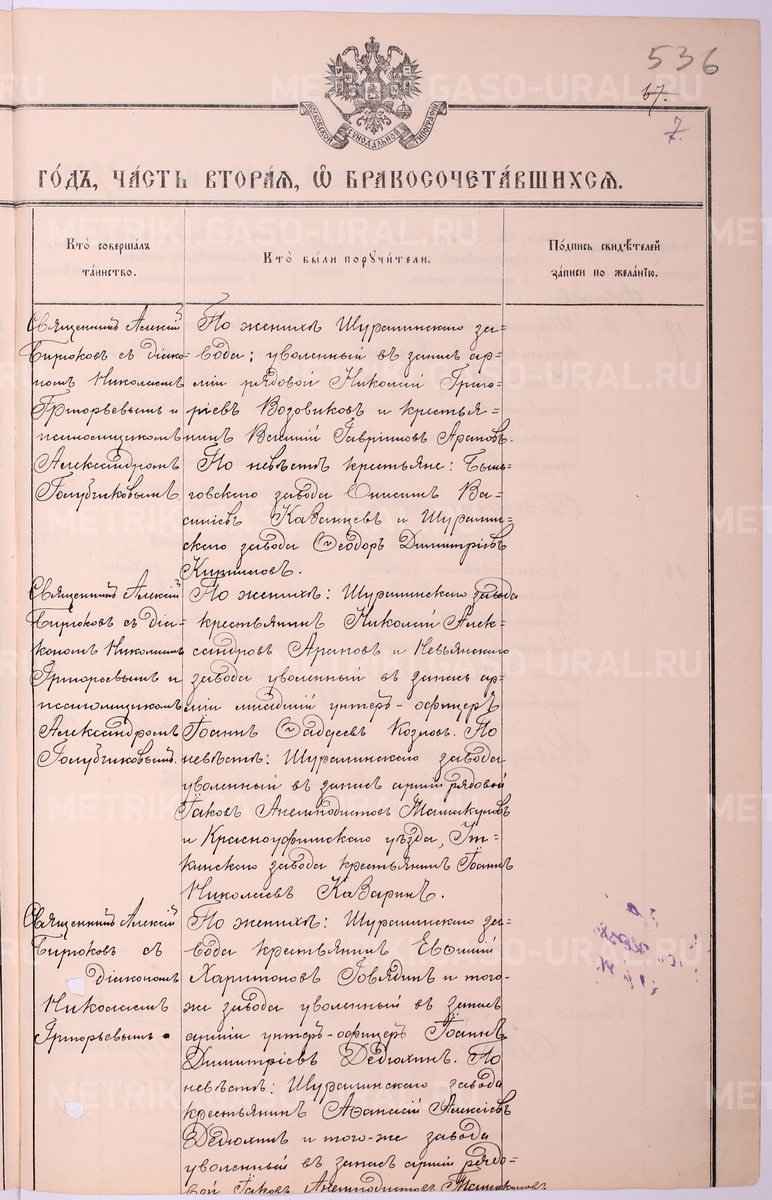 536
67.
7.
МОСКОВСКОЙ СѴНОДАЛЬНОЙ ТИПОГРАФІИ
ГО́ДЪ, ЧА́СТЬ ВТОРА́Ѧ, Ѽ БРАКОСОЧЕТА́ВШИХСѦ.
Кто̀ совершалъ
та́инство.
Кто̀ бы́ли порꙋчи́тели.
По́дпись свидѣ́телей
за́писи по жела́нію.
Священникъ Алексій
Бирюковъ съ діако-
номъ Николаемъ
Григорьевымъ и
псаломщикомъ
Александромъ
Голубчиковымъ.
По женихѣ Шуралинскаго за-
вода: уволенный въ запасъ ар-
міи рядовой Николай Григо-
ріевъ Возовиковъ и крестья-
нинъ Василій Гавріиловъ Араповъ.
По невѣстѣ крестьяне: Бынь-
говскаго завода Онисимъ Ва-
силіевъ Казанцевъ и Шуралин-
скаго завода Ѳеодоръ Димитріевъ
Кирилловъ.
Священникъ Алексій
Бирюковъ съ діа-
кономъ Николаемъ
Григорьевымъ и
псаломщикомъ
Александромъ
Голубчиковымъ.
По женихѣ: Шуралинскаго завода
крестьянинъ Николай Алек-
сандровъ Араповъ и Невьянскаго
завода уволенный въ запасъ ар-
міи младшій унтеръ-офицеръ
Іоаннъ Ѳадеевъ Козловъ. По
невѣстѣ: Шуралинскаго завода
уволенный въ запасъ арміи рядовой
Іаковъ Анемподистовъ
и Красноуфимскаго уѣзда,
завода крестьянинъ Іоаннъ
Николаевъ Казаринъ.
Священникъ Алексій
Бирюковъ съ
діакономъ
Николаемъ
Григорьевымъ.
По женихѣ: Шуралинскаго за-
вода крестьянинъ Евѳимій
Харитоновъ Говядинъ и того-
же завода уволенный въ запасъ
арміи унтеръ-офицеръ Іоаннъ
Димитріевъ Дедюхинъ. По
невѣстѣ: Шуралинскаго завода
крестьянинъ Аѳанасій Алексіевъ
Дедюхинъ и того-же завода
уволенный въ запасъ арміи рядо-
вой Іаковъ Анемподистовъ
METRIKI.GASO-URAL.RU